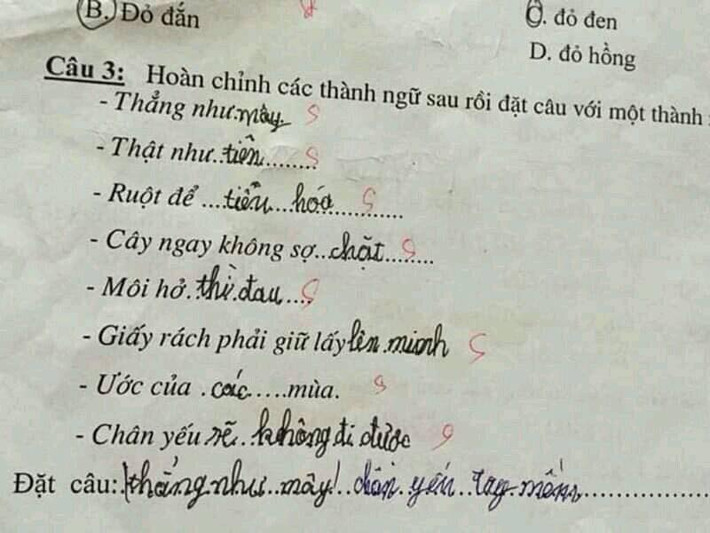 B. Đỏ đắn
C. đỏ đen
D. đỏ hồng
Câu 3: Hoàn chỉnh các thành ngữ sau rồi đặt câu với một thành
- Thẳng như mày
- Thật như..tiền........
- Ruột để ...tiêu...hóa............
- Cây ngay không sợ..chặt........
- Môi hở.thì.đau....
- Giấy rách phải giữ lấy lên mình
- Ước của .các.....mùa.
- Chân yếu sẽ..không đi được
Đặt câu: thẳng như...mày!..chân.yếu..tay.mềm................